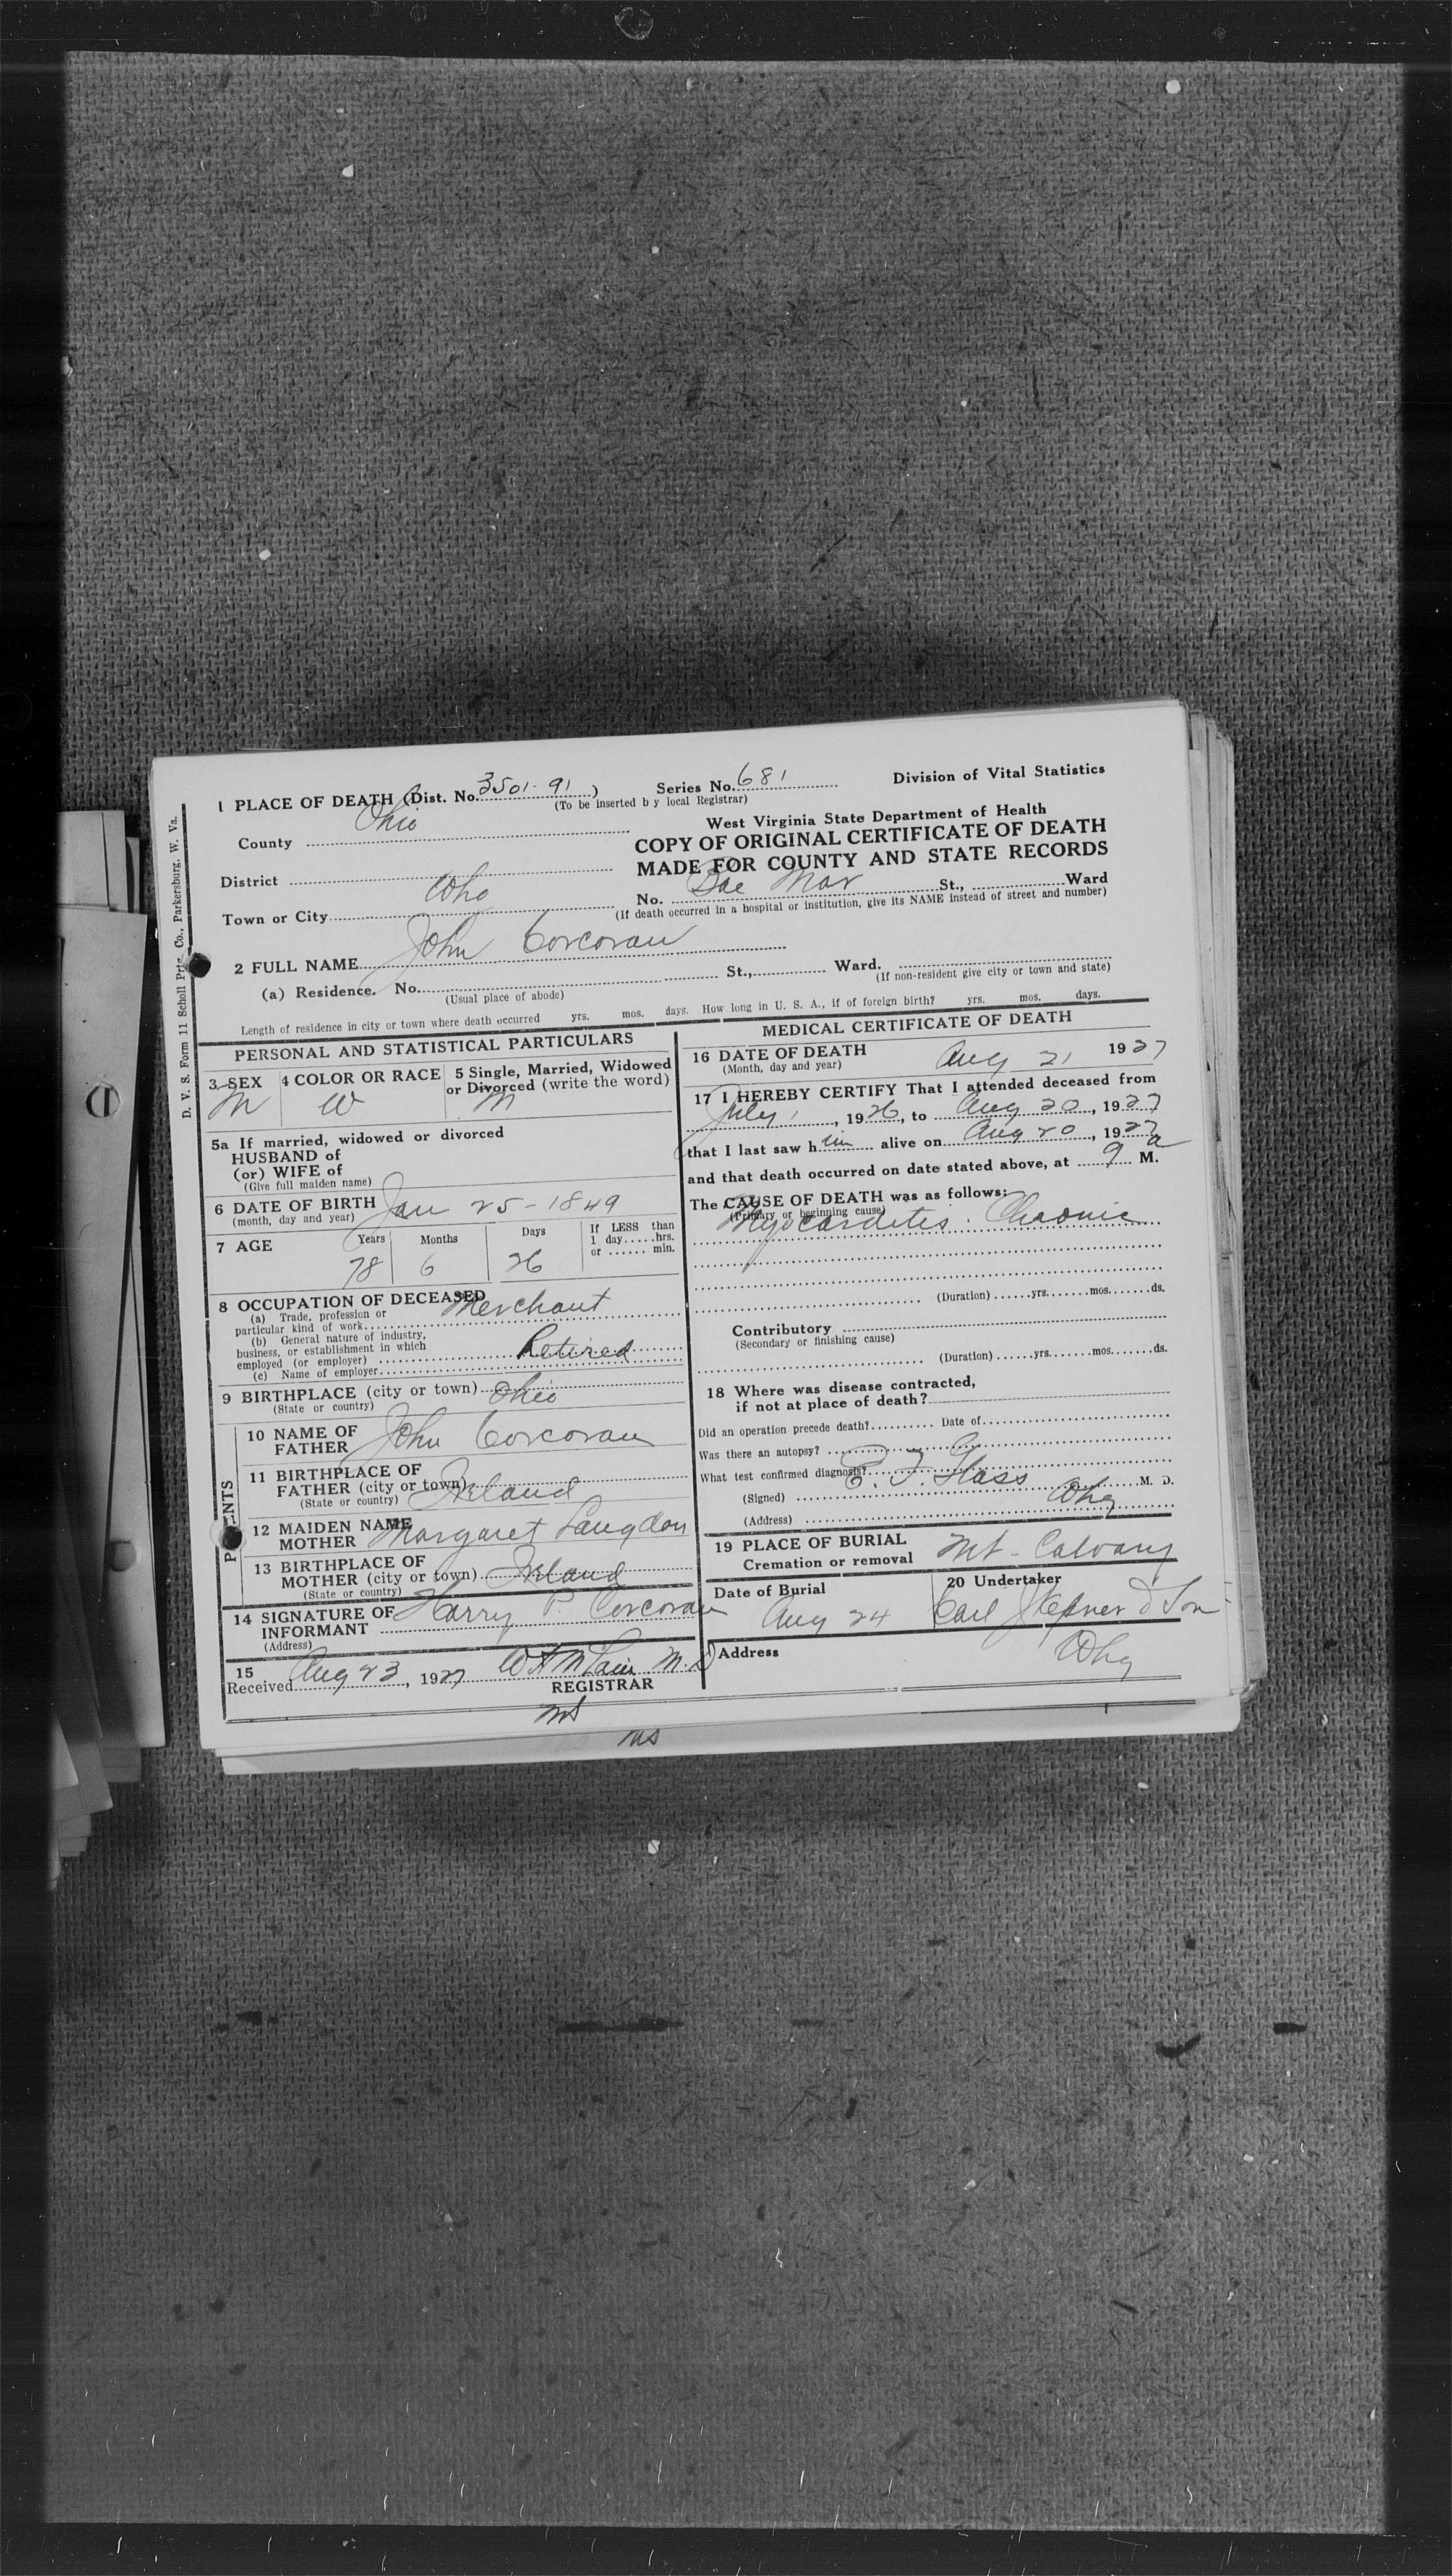 1 PLACE OF DEATH (Dist. No. 3501-91) Series No. 681 Division of Vital Statistics
(To be inserted by local Registrar)
County Ohio West Virginia State Department of Health
COPY OF ORIGINAL CERTIFICATE OF DEATH
MADE FOR COUNTY AND STATE RECORDS
District
Town or City Whg No. Bae Mar St., Ward
(If death occurred in a hospital or institution, give its NAME instead of street and number)
2 FULL NAME John Corcoran
(a) Residence. No. St., Ward.
(Usual place of abode) (If non-resident give city or town and state)
Length of residence in city or town where death occurred yrs. mos. days. How long in U. S. A., if of foreign birth? yrs. mos. days.
PERSONAL AND STATISTICAL PARTICULARS
3 SEX 4 COLOR OR RACE 5 Single, Married, Widowed
or Divorced (write the word)
M W M
5a If married, widowed or divorced
HUSBAND of
(or) WIFE of
(Give full maiden name)
6 DATE OF BIRTH Jan 25-1849
(month, day and year)
7 AGE Years Months Days If LESS than
1 day.....hrs.
or ...... min.
78 6 26
8 OCCUPATION OF DECEASED
(a) Trade, profession or
particular kind of work Merchant
(b) General nature of industry,
business, or establishment in which
employed (or employer) Retired
(c) Name of employer
9 BIRTHPLACE (city or town) Ohio
(State or country)
PARENTS
10 NAME OF
FATHER John Corcoran
11 BIRTHPLACE OF
FATHER (city or town) Ireland
(State or country)
12 MAIDEN NAME
MOTHER Margaret Langdon
13 BIRTHPLACE OF
MOTHER (city or town) Ireland
(State or country)
14 SIGNATURE OF
INFORMANT Harry P. Corcoran
(Address)
15
Received Aug 23, 1927 W H McLain M.D
REGISTRAR
MEDICAL CERTIFICATE OF DEATH
16 DATE OF DEATH Aug 21 1927
(Month, day and year)
17 I HEREBY CERTIFY That I attended deceased from
July 1, 1926, to Aug 20, 1927
that I last saw him alive on Aug 20, 1927
and that death occurred on date stated above, at 9 a M.
The CAUSE OF DEATH was as follows:
(Primary or beginning cause)
Myocardites. Chronic
(Duration) ......yrs.......mos.......ds.
Contributory
(Secondary or finishing cause)
(Duration) ......yrs.......mos.......ds.
18 Where was disease contracted,
if not at place of death?
Did an operation precede death?.......... Date of
Was there an autopsy?
What test confirmed diagnosis?
(Signed) E. J. Glass M. D.
(Address) Whg
19 PLACE OF BURIAL
Cremation or removal Mt-Calvary
Date of Burial 20 Undertaker
Aug 24 Carl & Son
Address Whg
ms
ms
D. V. S. Form 11 Scholl Prtg. Co., Parkersburg, W. Va.